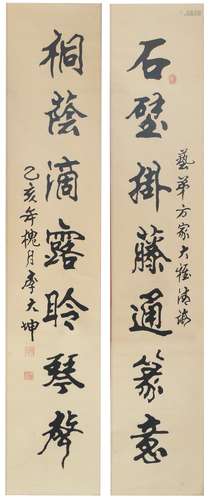 藝華方家大雅清
石壁掛藤通篆意
桐蔭滴露聆琴聲
乙亥年槐月李天坤